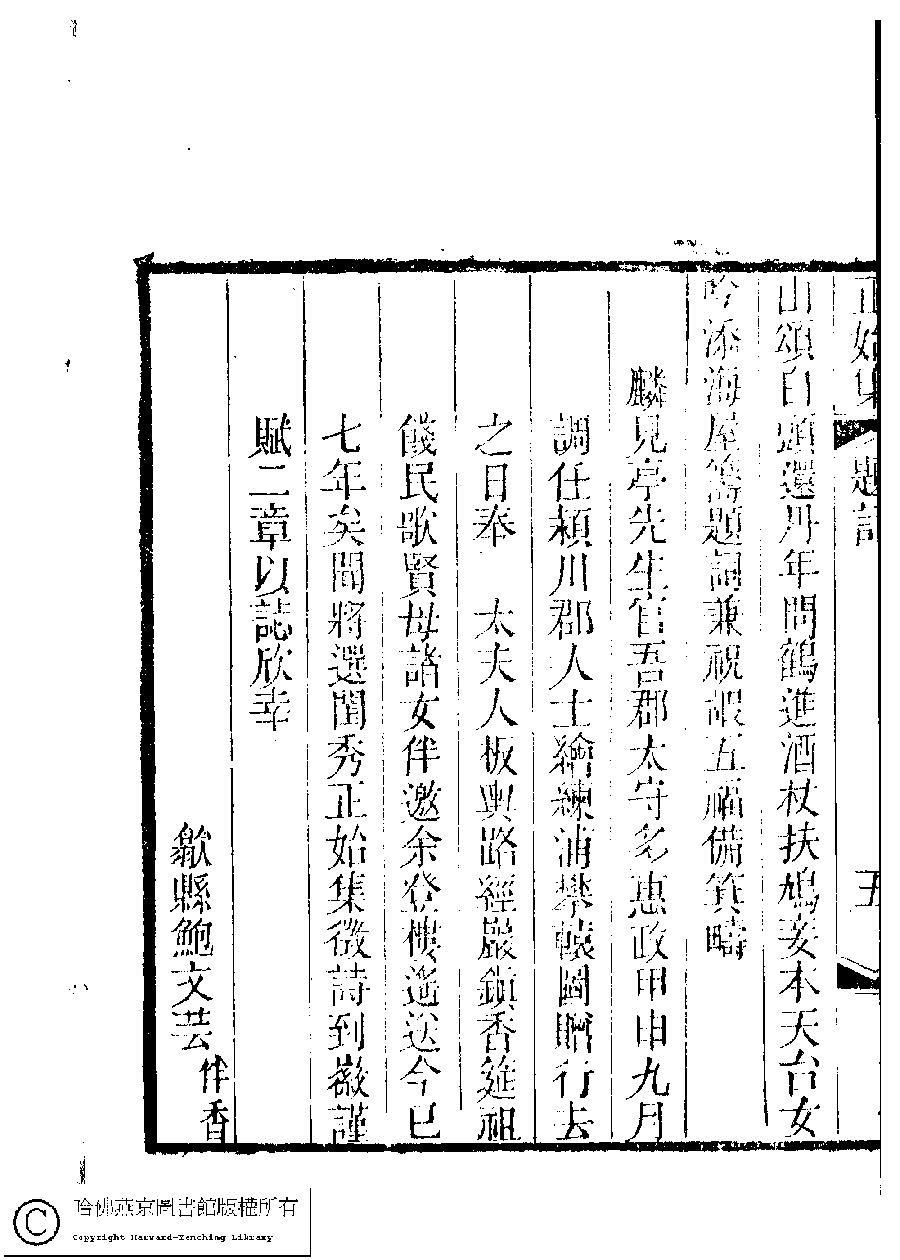 正始集 題詞 五
山頌白頭還丹年問鶴進酒杖扶鳩妾本天台女
吟添海屋籌題詞兼祝嘏五福備箕疇
麟見亭先生官吾郡太守多惠政甲申九月
調任潁川郡人士繪練浦攀轅圖贈行去
之日奉 太夫人板輿路經巖鎮香筵祖
餞民歌賢母諸女伴邀余登樓遙送今已
七年矣聞將選閨秀正始集徵詩到薇謹
賦二章以誌欣幸
歙縣鮑文芸 伴香
哈佛燕京圖書館版權所有
Copyright Harvard-Yenching Library